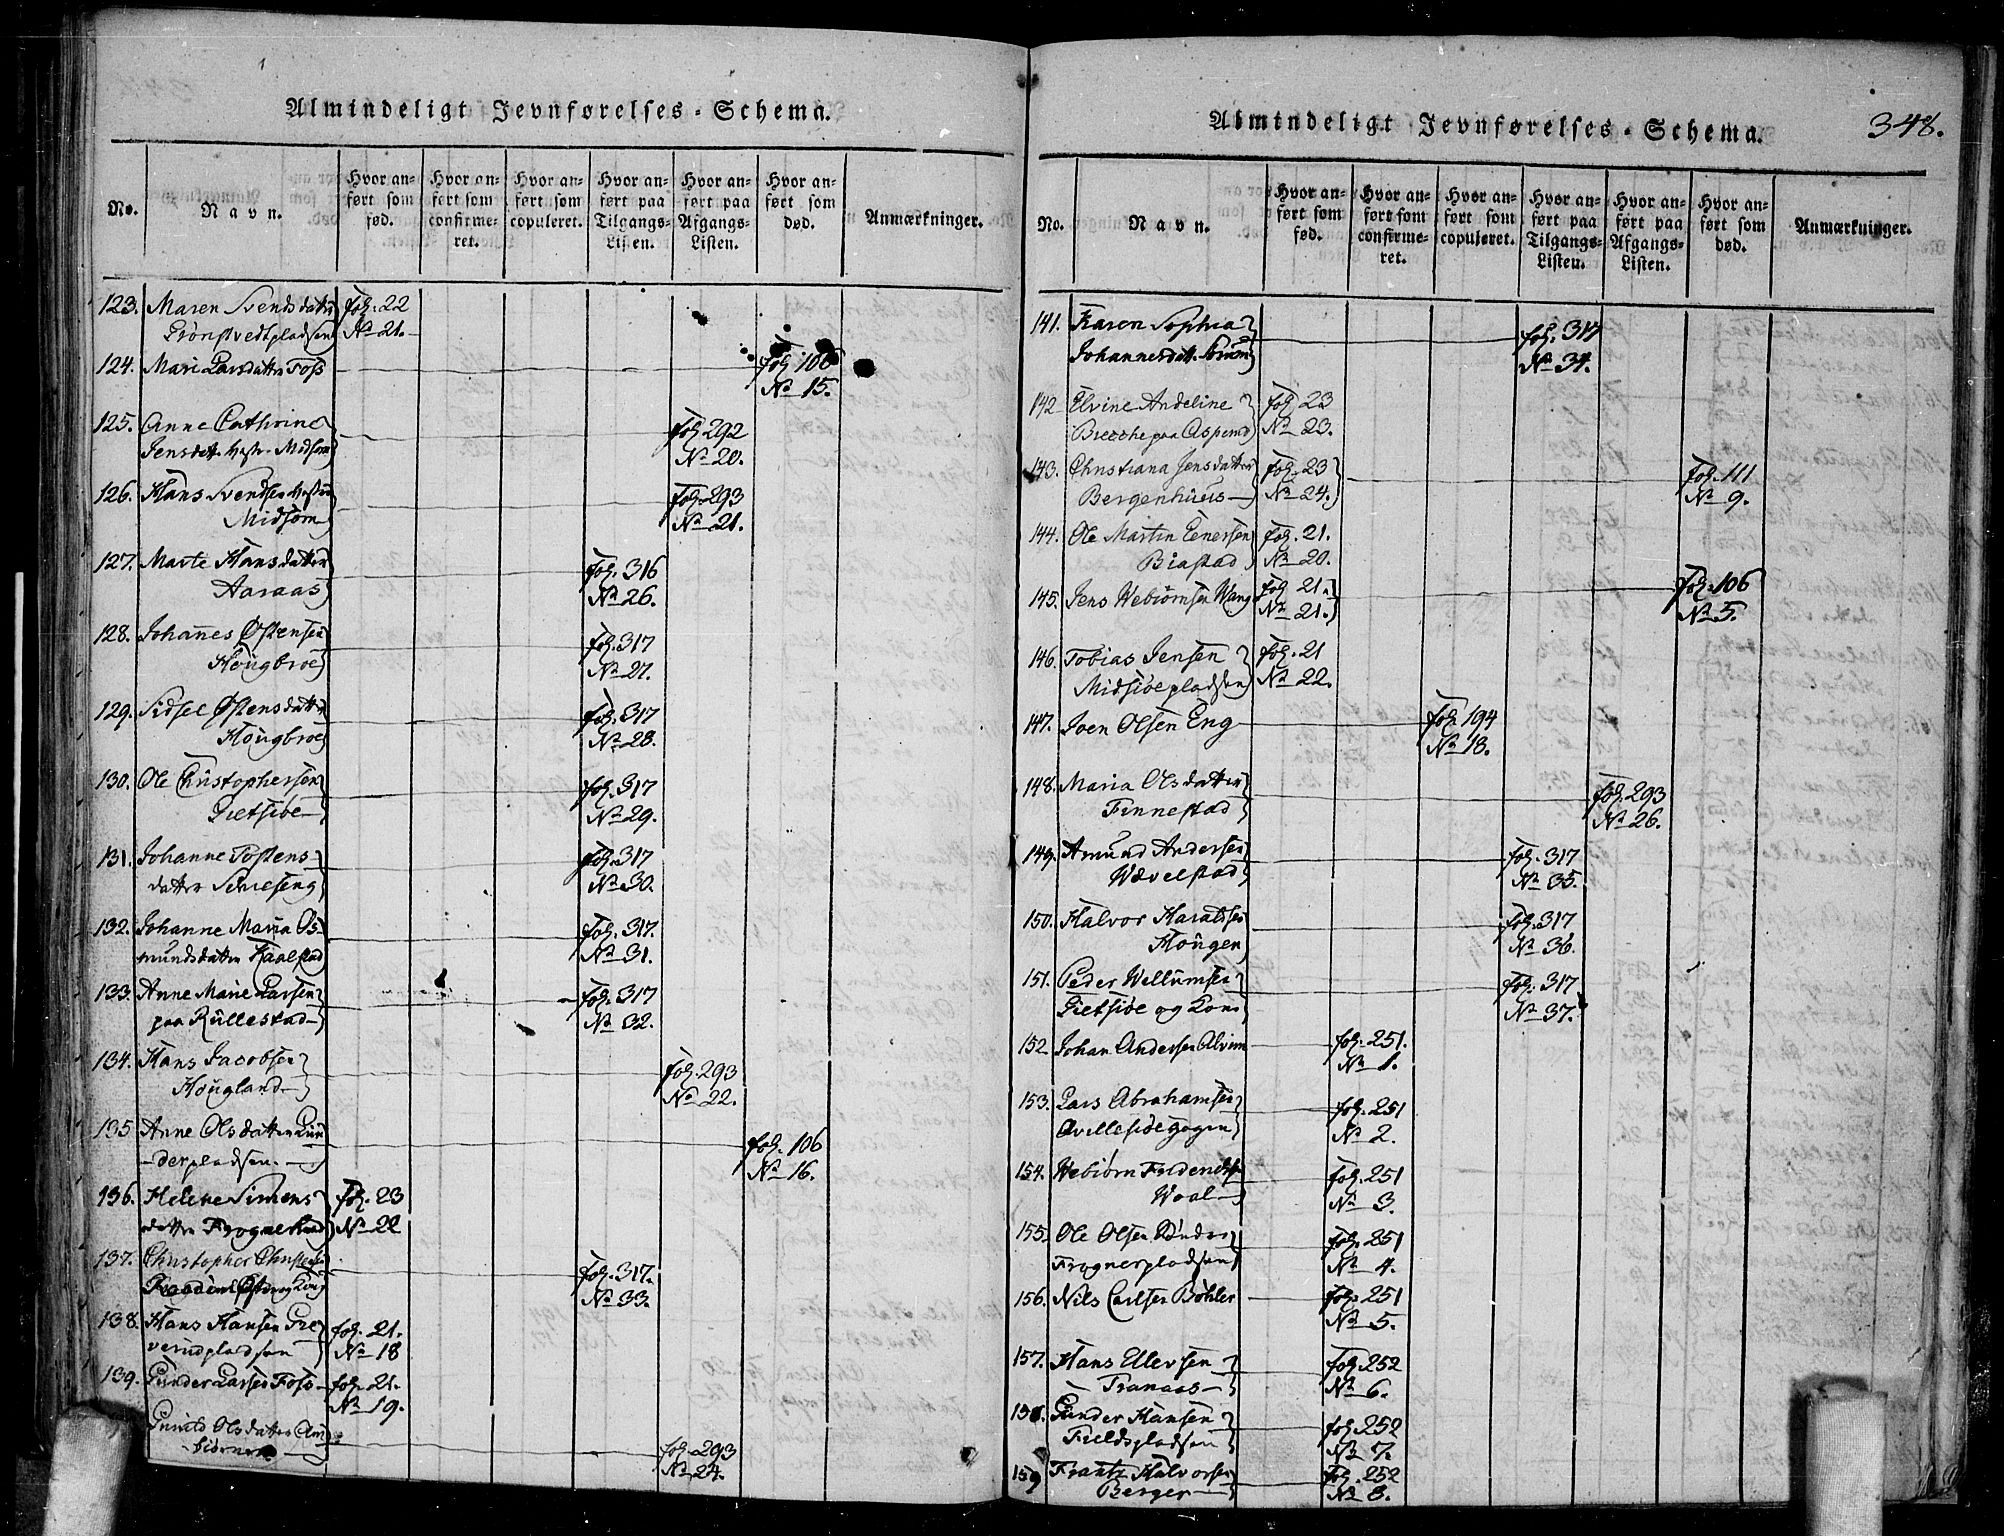 Almindeligt Jevnførelses-Schema.
No.
Navn.
Hvor anført som fød.
Hvor anført som confirmeret.
Hvor anført som copuleret.
Hvor anført paa Tilgangs-Listen.
Hvor anført paa Afgangs-Listen.
Hvor anført som død.
Anmærkninger.
123. Maren Svendsdatter fol. 22
Grönstvedtpladsen No 21.
124. Mari Larsdatter Foss fol 106
No 15.
125. Anne Cathrine fol 292
Jensdatt. Midsom No 20.
126. Hans Svendsen fol. 293
Midsom No 21.
127. Marte Hansdatter fol. 316
Aaraas No 26.
128. Johannes Østensen fol. 317
Hougbroe No 27.
129. Sidsel Østensdatter fol. 317
Hougbroe No 28.
130. Ole Christophersen fol. 317
Gietsiøe No 29.
131. Johanne Tostens- fol. 317
datter No 30.
132. Johanne Maria Os- fol. 317.
mundsdatter Kaalstad No 31.
133. Anne Marie Larsen fol. 317
paa Rullestad No 32.
134. Hans Jacobsen fol. 293
Hougland No 22.
135. Anne Olsdatter fol. 106
derpladsen. No 16.
136. Helene Simens fol. 23
datter Frognerstad No 22
137. Christopher Christensen fol. 317.
No 33.
138. Hans Hansen Gre fol. 21.
verudpladsen No 18
139. Gunder Larsen Foss fol. 21.
No 19.
Gunild Olsdatter Am fol. 293
biörnrud No 24.
Almindeligt Jevnførelses-Schema.
348.
No.
Navn.
Hvor anført som fød.
Hvor anført som confirmeret.
Hvor anført som copuleret.
Hvor anført paa Tilgangs-Listen.
Hvor anført paa Afgangs-Listen.
Hvor anført som død.
Anmærkninger.
141. Karen Sophia fol. 317
Johannesdatt. No 34.
142 Elvine Andeline fol 23
paa No 23.
143. Christiana Jensdatter fol. 23 fol. 111
Bergenhuus No 24. No 9.
144. Ole Martin Eenersen fol. 21.
Biastad No 20.
145. Jens Webiörnsen Wang fol 21. fol. 106
No 21. No 5.
146. Tobias Jensen fol. 21
Midsiöepladsen No 22.
147. Joen Olsen Eng fol 194
No 18.
148. Maria Olsdatter fol. 293
Finnestad No 26.
149. Amund Andersen fol. 317
Wævelstad No 35.
150. Halvor Haraldsen fol. 317
Hougen No 36.
151. Peder Wellumsen fol. 317
Gietsiøe og Kone No 37.
152 Johan Andersen Alvim fol. 251.
No 1.
153. Lars Abrahamsen fol. 251
No 2.
154. Webiörn fol. 251
Waal No 3.
155. Ole Olsen fol. 251
Frognerpladsen No 4.
156. Nils Carlsen Böhler fol. 251
No 5.
157. Hans Ellevsen fol. 252
Tranaas No 6.
158. Gunder Hansen fol. 252
Fieldspladsen No 7.
159 Frantz Halvorsen fol. 252
Berger No 8.